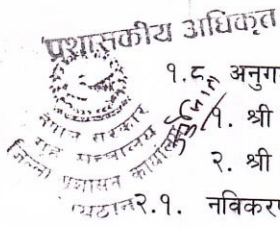 प्रशासकीय अधिकृत
१.८ अनुग
१. श्री
२. श्री
२.१. नविकर
नेपाल सरकार
गृह मन्त्रालय
जिल्ला प्रशासन कार्यालय